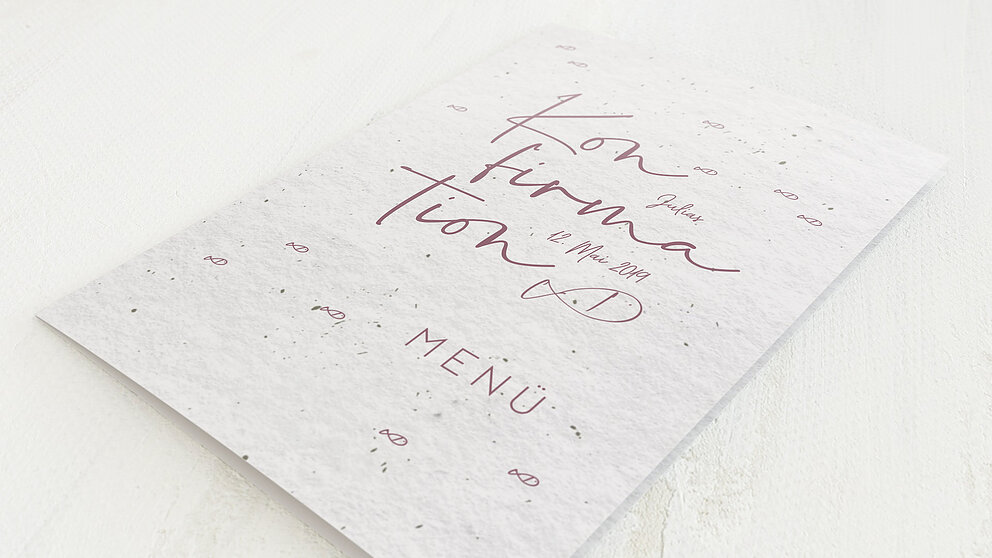 Kon
firma
Tion
Julias
12. Mai 2019
MENÜ